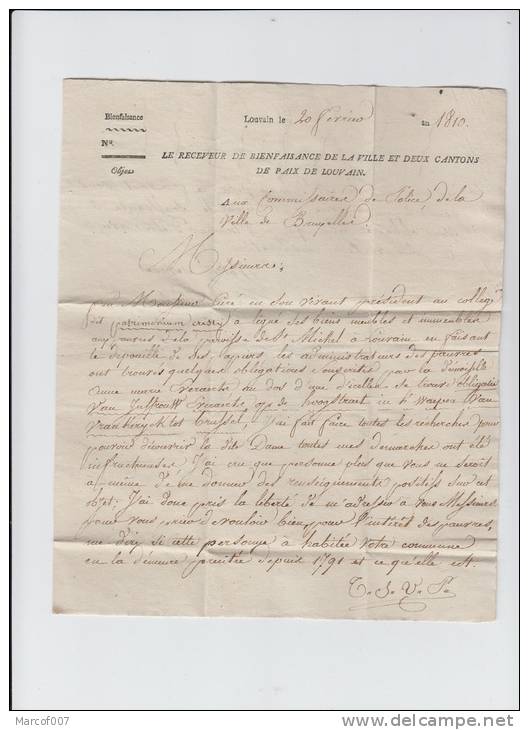 Bienfaisance
Louvain le 20 fevrier an 1810.
N°.
Objet
LE RECEVEUR DE BIENFAISANCE DE LA VILLE ET DEUX CANTONS
DE PAIX DE LOUVAIN.
Aux Commissaires de Police, de la
Ville de Bruxelles.
Messieurs;
feu Monsieur en son vivant président au college
dit patrimonium a légué des biens meubles et immeubles
aux pauvres de la paroisse de St. Michel a Louvain en faisant
le depouille de ses papiers les administrateurs des pauvres
ont trouvés quelques obligations par la
d'une marie au dos d'une d'icelles se trouve obligatie
van Juffrouw op de hoogstraet in
tot Brussel, J'ai fait faire toutes les recherches pour
pouvoir découvrir la dite Dame toutes mes demarches ont été
infructueuses, J'ai cru que personne plus que vous ne seroit
a même de me donner des renseignements positifs sur cet
objet; J'ai donc pris la liberté de m'adresser a vous Messieurs
pour vous prier d'vouloir bien, pour l'intéret des pauvres,
me dire si cette personne a habitée votre commune
en la depuis 1791 et ce qu'elle est
T. S. V. P.
Marcof007